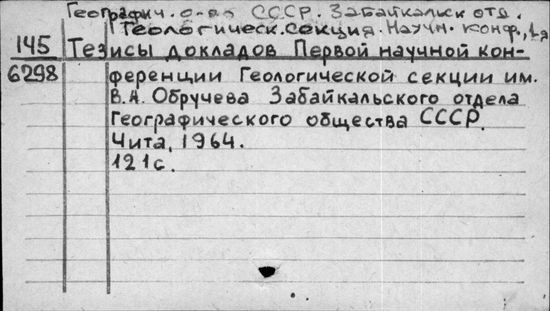 Географич. о-во СССР. Забайкальск отд.
Геологическ. секция. Научн. конф., 1-я
145 Тезисы докладов Первой научной кон-
6298 ференции Геологической секции им.
В.А. Обручева Забайкальского отдела
Географического общества СССР.
Чита, 1964.
121с.